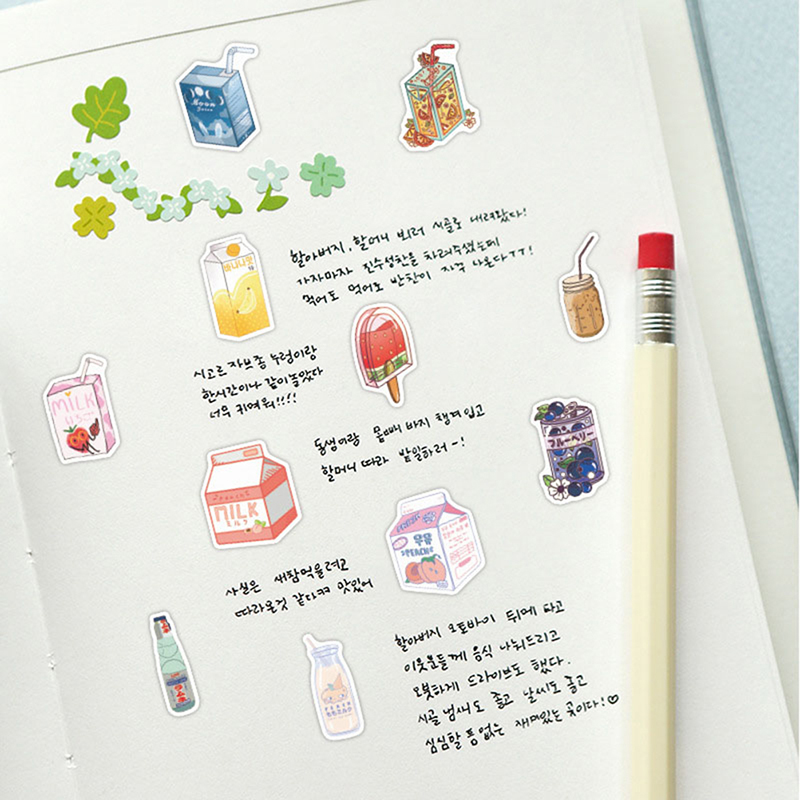 Moon
Juice
할아버지, 할머니 보러 시골로 내려왔다!
가자마자 진수성찬을 차려주셨는데
먹어도 먹어도 반찬이 자꾸 나온다ㅜㅜ!
바나나맛
시고르자브종 누렁이랑
한시간이나 같이 놀았다
너무 귀여워!!!!
MILK
동생이랑 몸빼 바지 챙겨입고
할머니 따라 밭일하러~!
ブルーベリー
MILK
ミルク
우유
PEACH
사실은 새참먹을려고
따라온것 같다ㅋㅋ 맛있어
할아버지 오토바이 뒤에 타고
이웃분들께 음식 나눠드리고
오붓하게 드라이브도 했다.
시골 냄새도 좋고 날씨도 좋고
심심할 틈 없는 재미있는 곳이다!♡
ラムネ